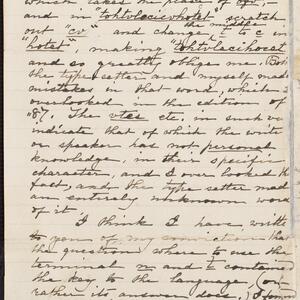 which takes the place of "cv",—
and in "tohtvlecisvhotet" scratch
the middle
out "cv" and change t to c in
"hotet", making "ohtvlecihocet
and so greatly oblige me. Both
the type setter and myself made
mistakes in that word, which I
overlooked in the edition of
'87. The vtes etc, in such
indicate that of which the writ
or speaker has not personal
knowledge, in their specific
character, and I over looked the
fact, and the type setter mad
an entirely unknown word
of it.
I think I have, writt
to you of my conviction that
the question where to use the
terminal n and t contains
the key to the language, or
rather its answer does,